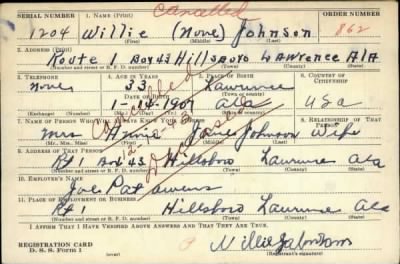 Cancelled
SERIAL NUMBER 1. NAME (Print) ORDER NUMBER
1204 Willie (None) Johnson 862
(First) (Middle) (Last)
2. ADDRESS (Print)
Route 1 Box 43 Hillsboro Lawrence Ala
(Number and street or R. F. D. number) (Town) (County) (State)
3. TELEPHONE 4. AGE IN YEARS 5. PLACE OF BIRTH 6. COUNTRY OF CITIZENSHIP
None 33 Lawrence
DATE OF BIRTH (Town or county)
1-14-1907 Ala USa
(Exchange) (Number) (Mo.) (Day) (Yr.) (State or country)
7. NAME OF PERSON WHO WILL ALWAYS KNOW YOUR ADDRESS 8. RELATIONSHIP OF THAT PERSON
Mrs Annie Johnson Wife
(Mr., Mrs., Miss) (First) (Middle) (Last)
Cancelled
Deceased
9. ADDRESS OF THAT PERSON
Rt 1 Box 43 Hillsboro Lawrence Ala
(Number and street or R. F. D. number) (Town) (County) (State)
10. EMPLOYER'S NAME
Pat Owens
11. PLACE OF EMPLOYMENT OR BUSINESS
Rt 1 Hillsboro Lawrence Ala
(Number and street or R. F. D. number) (Town) (County) (State)
I AFFIRM THAT I HAVE VERIFIED ABOVE ANSWERS AND THAT THEY ARE TRUE.
REGISTRATION CARD
D. S. S. Form 1 (Registrant's signature)